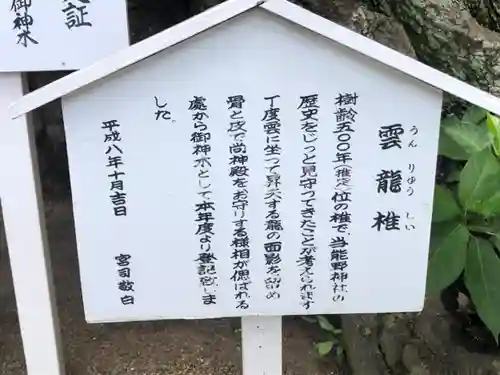 御神木
之証
雲龍椎
うんりゅうしい
樹齢五〇〇年(推定)位の椎で、当熊野神社の
歴史をじっと見守ってきたことが考えられます
丁度雲に坐って昇天する龍の面影を留め
骨と皮で尚神殿をお守りする様相が偲ばれる
處から御神木として、本年度より登記致しま
した。
平成八年十月吉日
宮司敬白